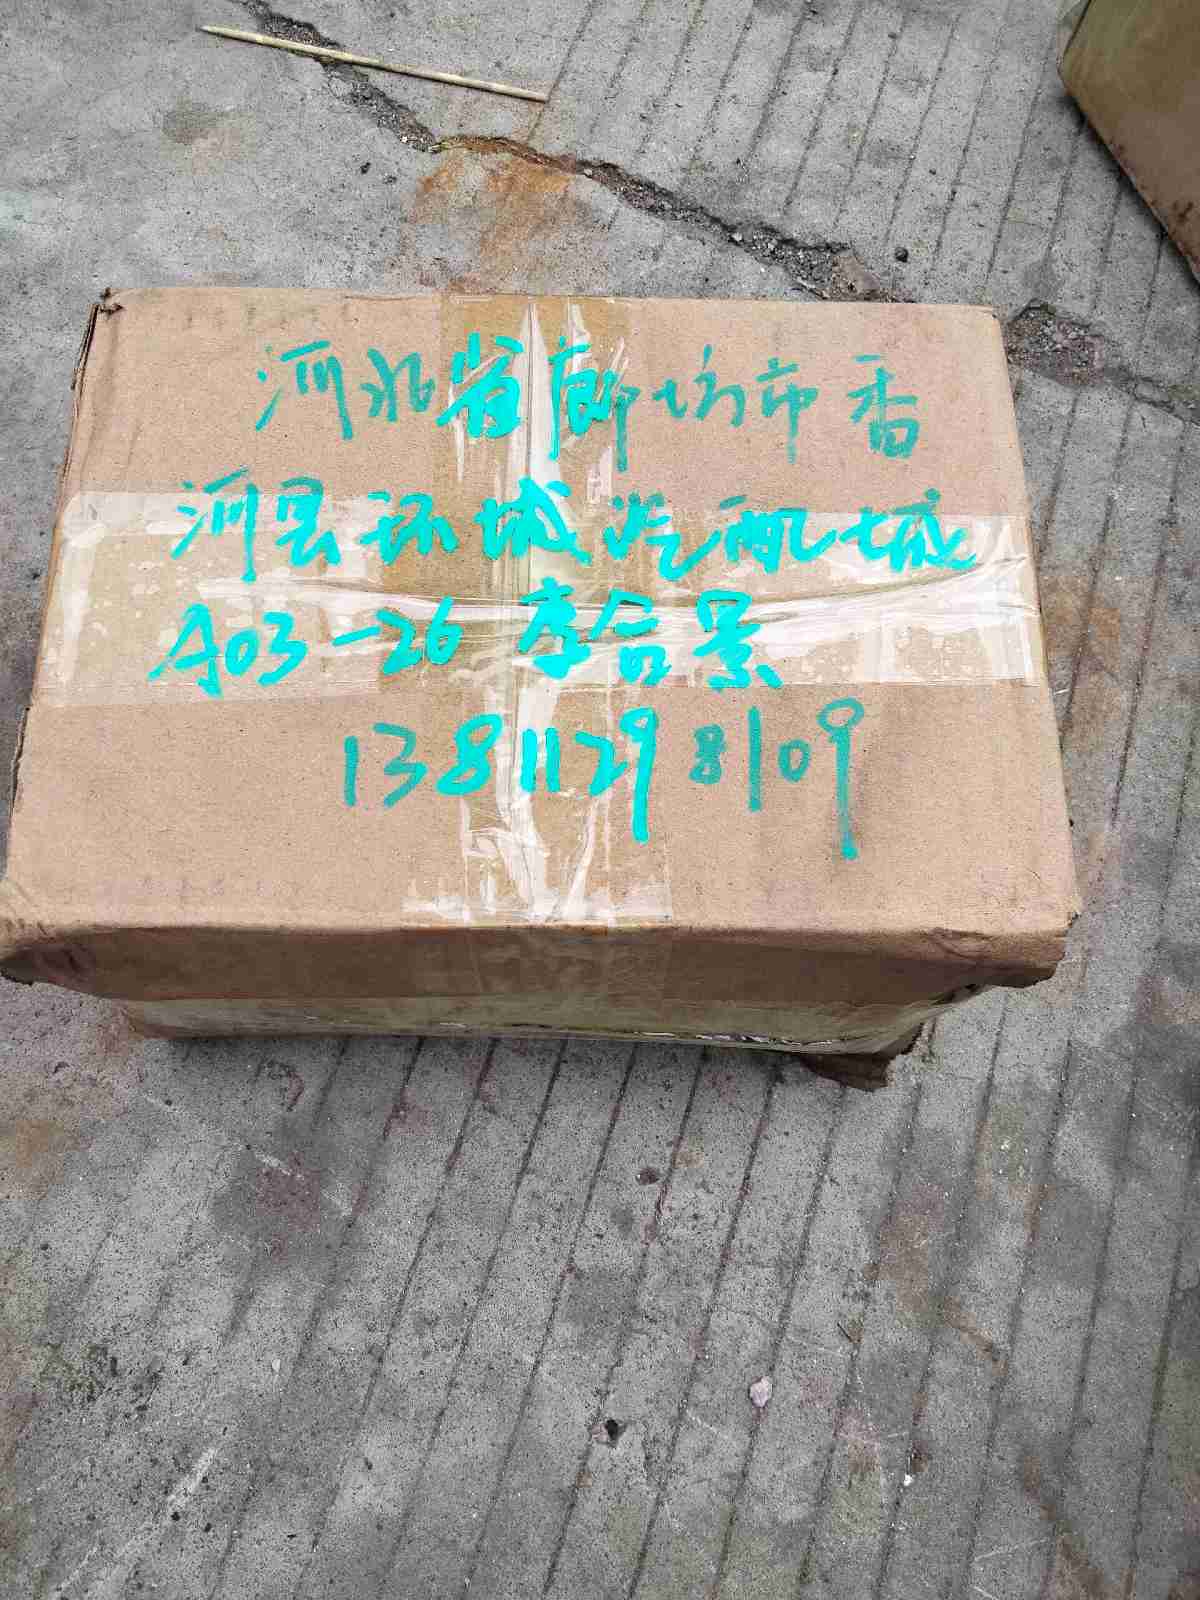 河北省廊坊市香
河县环城汽配城
A03-26 李合景
13811298109